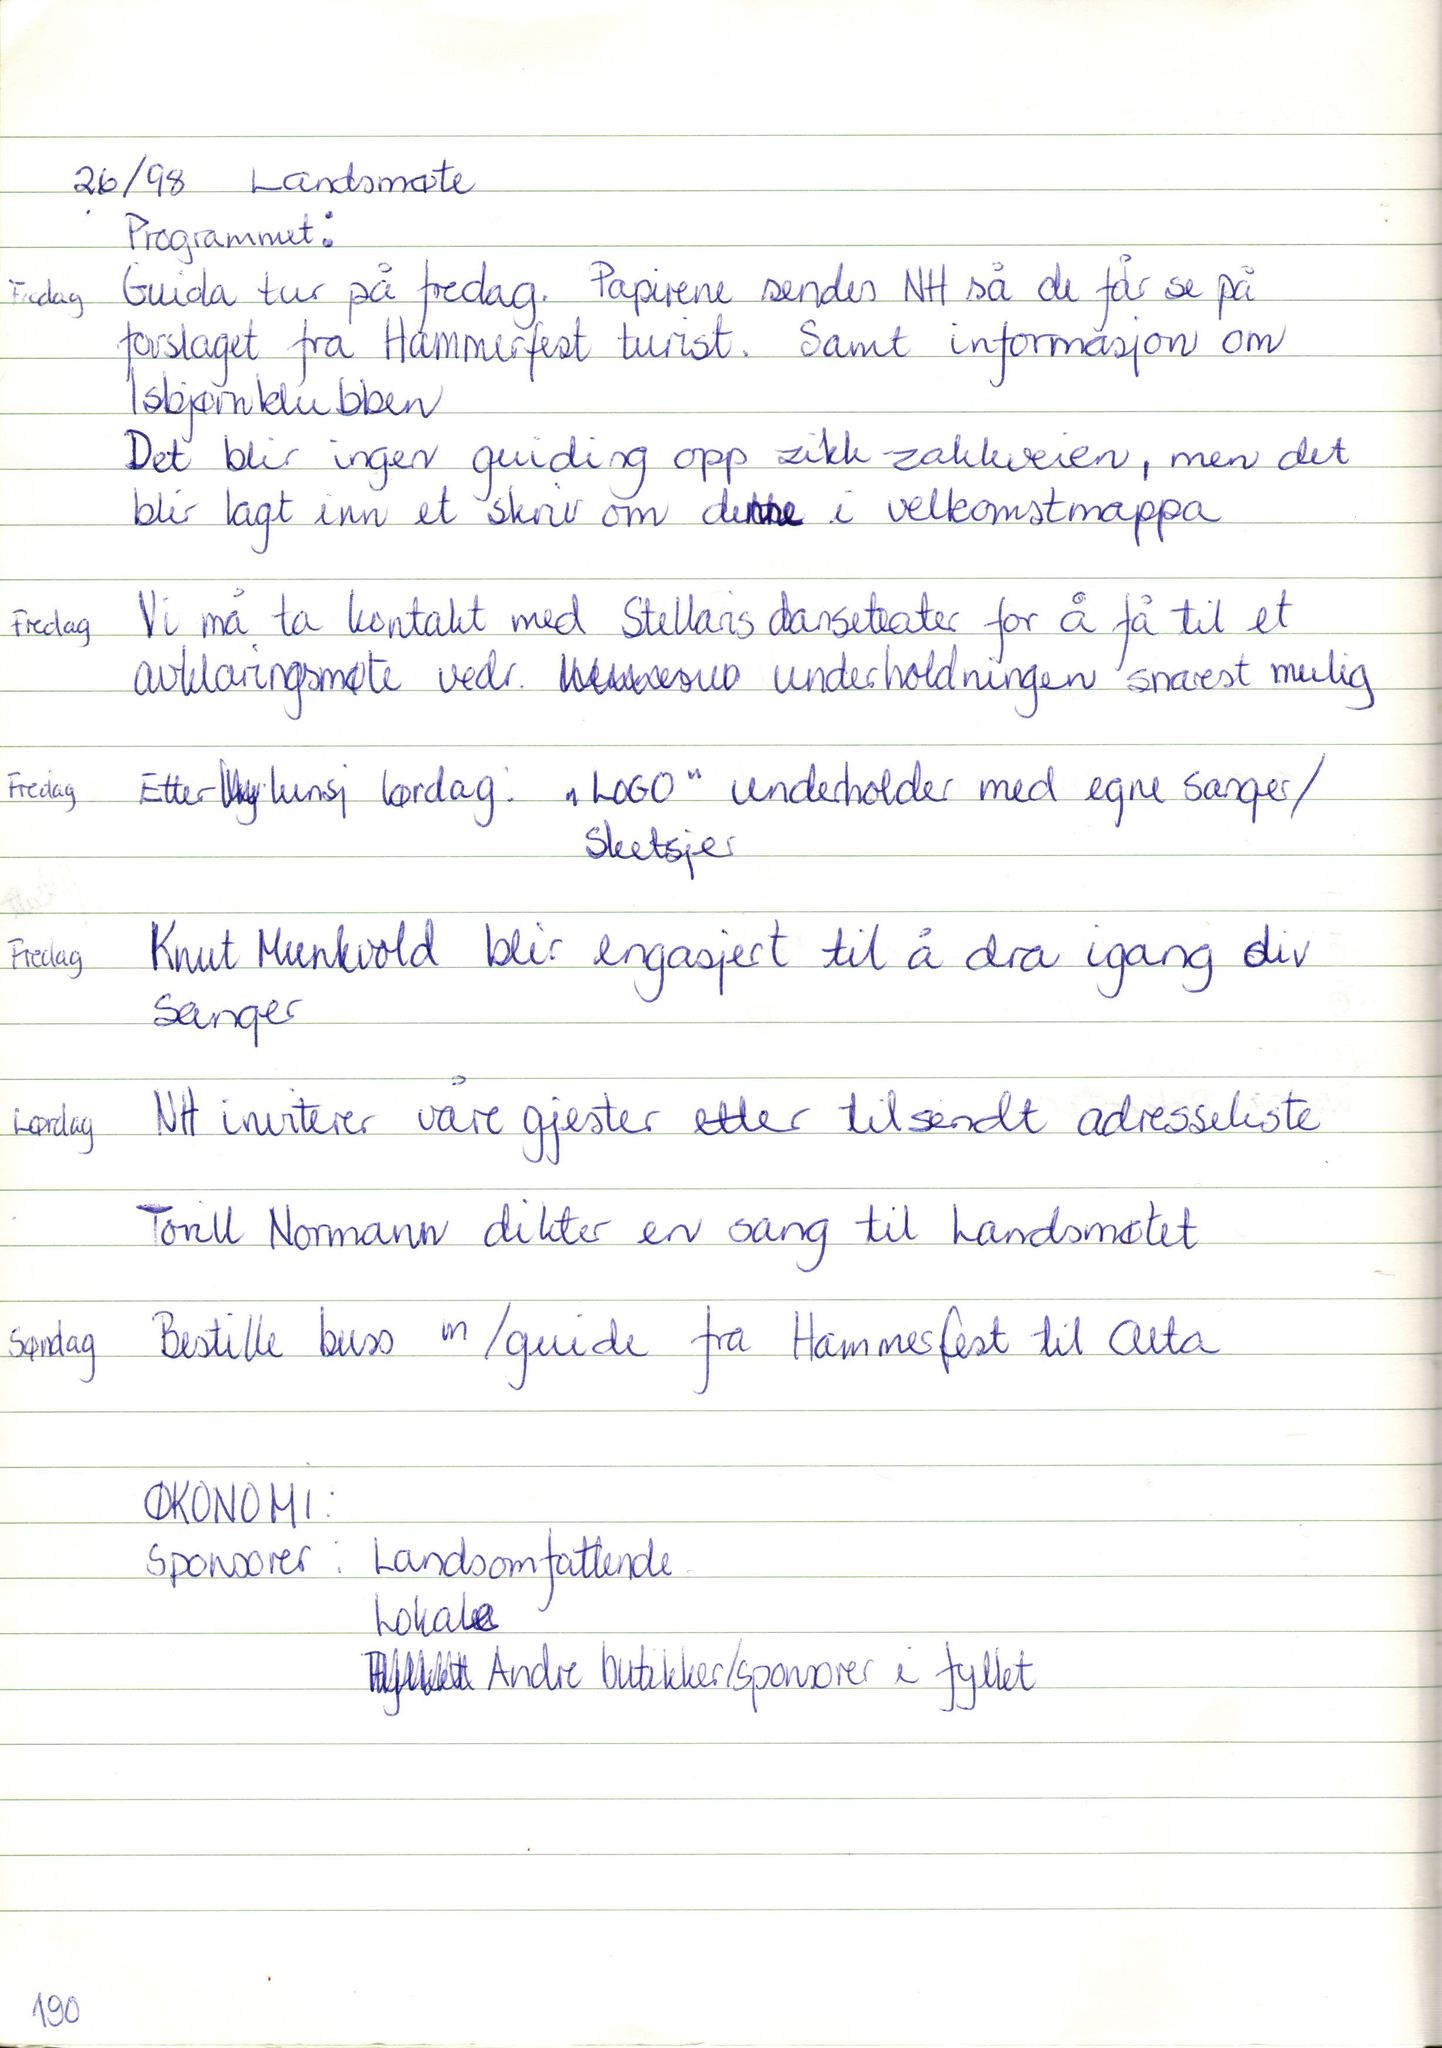 26/98 Landsmøte
Programmet:
Fredag Guida tur på fredag. Papirene sendes NH så de får se på
forslaget fra Hammerfest turist. Samt informasjon om
Isbjørnklubben
Det blir ingen guiding opp zikk-zakkveien, men det
blir lagt inn et skriv om denne i velkomstmappa
Fredag Vi må ta kontakt med Stellaris danseteater for å få til et
avklaringsmøte vedr. underholdningen snarest mulig
Fredag Etter lunsj lørdag: "LOGO" underholder med egne sanger/
Sketsjer
Fredag Knut Munkvold blir engasjert til å dra igang div
sanger
Lørdag NH inviterer våre gjester etter tilsendt adresseliste
Torill Normann dikter en sang til Landsmøtet
Søndag Bestille buss m/guide fra Hammerfest til Alta
ØKONOMI:
Sponsorer: Landsomfattende
Lokale
Andre butikker/sponsorer i fylket
190